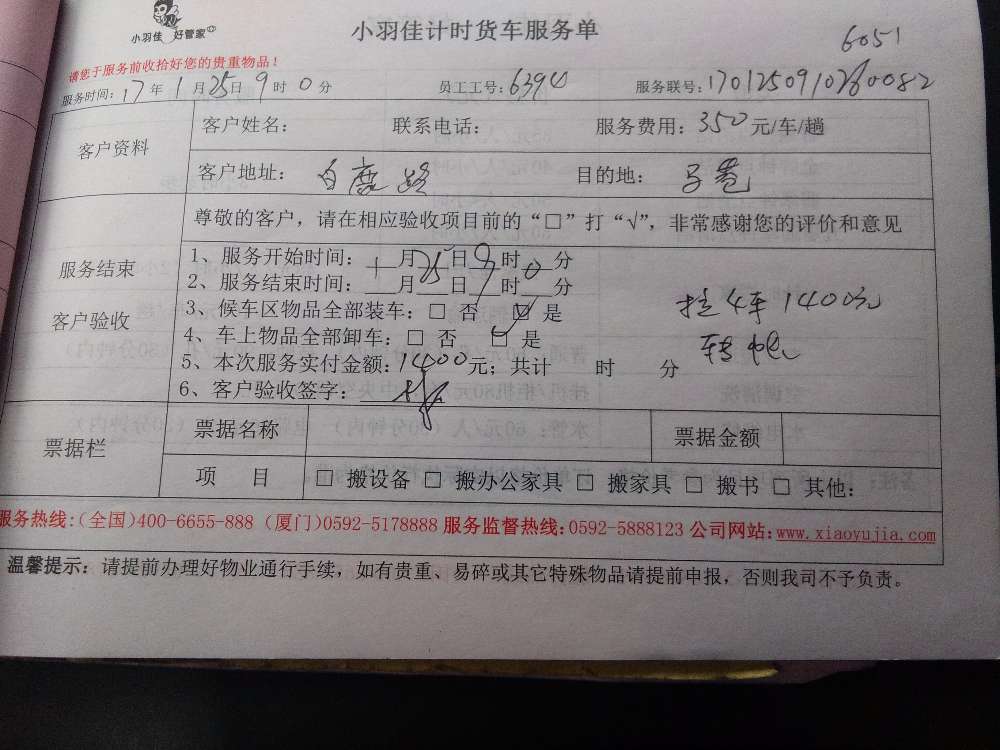 小羽佳 好管家
小羽佳计时货车服务单
6051
请您于服务前收拾好您的贵重物品！
服务时间：17年1月25日9时0分 员工工号：6394 服务联号：1701250910260082
客户资料
客户姓名： 联系电话： 服务费用：350元/车/趟
客户地址：白鹿路 目的地：
尊敬的客户，请在相应验收项目前的“□”打“√”，非常感谢您的评价和意见
服务结束
客户验收
1、服务开始时间：1月25日9时0分
2、服务结束时间：__月__日__时__分
3、候车区物品全部装车：□ 否 ☑ 是
4、车上物品全部卸车：□ 否 ☑ 是
5、本次服务实付金额：1400元；共计 时 分
6、客户验收签字：
4车1400元
转账
票据栏
票据名称 票据金额
项 目 □ 搬设备 □ 搬办公家具 □ 搬家具 □ 搬书 □ 其他：
服务热线:(全国)400-6655-888 (厦门)0592-5178888 服务监督热线:0592-5888123 公司网站:www.xiaoyujia.com
温馨提示：请提前办理好物业通行手续，如有贵重、易碎或其它特殊物品请提前申报，否则我司不予负责。